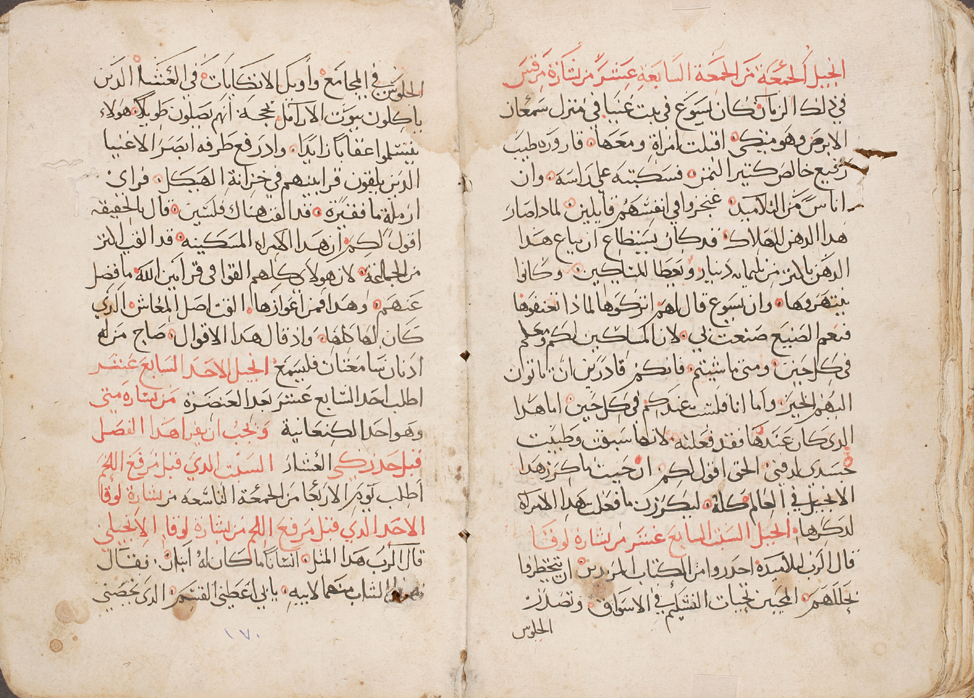 انجيل الجمعة من الجمعة السابعة عشر من بشارة مرقس
في ذلك الزمان كان يسوع في بيت عنيا في منزل سمعان
الابرص وهو متكي اقبلت امراة ومعها قارورة طيب
رفيع خالص كثير الثمن فسكبته على راسه وان
اناس من التلاميد ضجروا في انفسهم قايلين لماذا صار
هدا الدهن للهلاك فقد كان يستطاع ان يباع هدا
الدهن باكثر من ثلثماية دينار ويعطا للمساكين وكانوا
ينتهروها وان يسوع قال لهم اتركوها لماذا تعنفوها
فنعم الصنيع صنعت بي لان المساكين لكم ومعكم
في كل حين ومتى ما شيتم فانكم قادرين ان تاتون
اليهم الخير واما انا فلست عندكم في كل حين اما هدا
الدي كان عندها فقد فعلته لانها سبقت وطيبت
جسدي لدفني الحق اقول لكم ان حيث ما يكرز هدا
الانجيل في العالم كله ليكرزن ما فعل هده الامراة
لدكرها انجيل السبت السابع عشر من بشارة لوقا
قال الرب لتلاميده احدروا من الكتاب المريدين ان يتخطروا
بحللهم المحبين تحيات التسليم في الاسواق وتصدر
الجلوس
الجلوس في المجامع واوايل الاتكاات في العشا الدين
ياكلون بيوت الارامل بحجة انهم يصلون طويلا هولاء
يستلموا عقابا زايدا وادرفع طرفه ابصر الاغنيا
الدين يلقون قرابينهم في خزانة الهيكل فراى
ارملة ما فقيرة قد القت هناك فلسين قال بالحقيقه
اقول لكم ان هدا الامراه المسكينه قد القت اكثر
من الجماعة لان هولاء كلهم القوا في قرابين الله ما فضل
عنهم وهدا فمن اعوازها القت اصل المعاش الدي
كان لها كلها واد قال هدا الاقوال صاح من له
ادنان سامعتان فليسمع انجيل الاحد السابع عشر
اطلب احد السابع عشر بعد العنصرة من بشارة متى
وهو احد الكنعانية ويجب ان يقرا هدا الفصل
قبل احد زكي العشار السبت الدي قبل مرفع اللحم
اطلب ليوم الاربعا من الجمعة التاسعه من بشارة لوقا
الاحد الدي قبل مرفع اللحم من بشارة لوقا الانجيلي
قال الرب هدا المثل انسانا ما كان له ابنان فقال
الشاب منهما لابيه يا ابي اعطيني القسم الدي يخصني
١٧٠